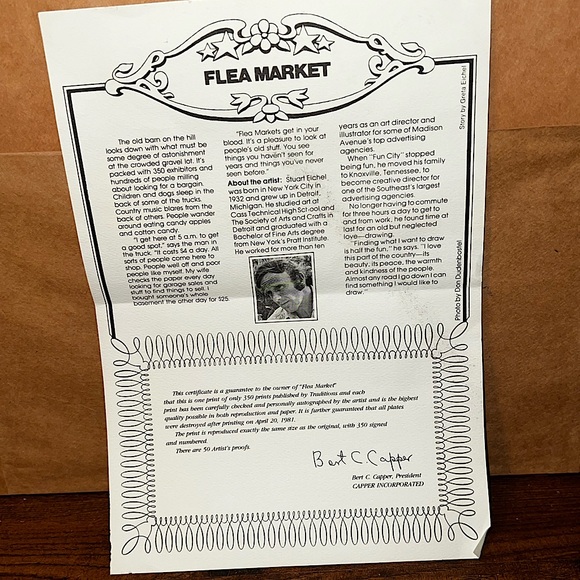 FLEA MARKET
The old barn on the hill
looks down with what must be
some degree of astonishment
at the crowded gravel lot. It's
packed with 350 exhibitors and
hundreds of people milling
about looking for a bargain.
Children and dogs sleep in the
back of some of the trucks.
Country music blares from the
back of others. People wander
around eating candy apples
and cotton candy.
"I get here at 5 a.m. to get
a good spot," says the man in
the truck. "It costs $4 a day. All
sorts of people come here to
shop. People well off and poor
people like myself. My wife
checks the paper every day
looking for garage sales and
stuff to find things to sell. I
bought someone's whole
basement the other day for $25.
"Flea Markets get in your
blood. It's a pleasure to look at
people's old stuff. You see
things you haven't seen for
years and things you've never
seen before."
About the artist: Stuart Eichel
was born in New York City in
1932 and grew up in Detroit,
Michigan. He studied art at
Cass Technical High School and
The Society of Arts and Crafts in
Detroit and graduated with a
Bachelor of Fine Arts degree
from New York's Pratt Institute.
He worked for more than ten
years as an art director and
illustrator for some of Madison
Avenue's top advertising
agencies.
When "Fun City" stopped
being fun, he moved his family
to Knoxville, Tennessee, to
become creative director for
one of the Southeast's largest
advertising agencies.
No longer having to commute
for three hours a day to get to
and from work, he found time at
last for an old but neglected
love—drawing.
"Finding what I want to draw
is half the fun," he says. "I love
this part of the country—its
beauty, its peace, the warmth
and kindness of the people.
Almost any road I go down I can
find something I would like to
draw."
Story by Greta Eichel
Photo by Don Dudenbostel
This certificate is a guarantee to the owner of "Flea Market"
that this is one print of only 350 prints published by Traditions and each
print has been carefully checked and personally autographed by the artist and is the highest
quality possible in both reproduction and paper. It is further guaranteed that all plates
were destroyed after printing on April 20, 1981.
The print is reproduced exactly the same size as the original, with 350 signed
and numbered.
There are 50 Artist's proofs.
Bert C. Capper
Bert C. Capper, President
CAPPER INCORPORATED